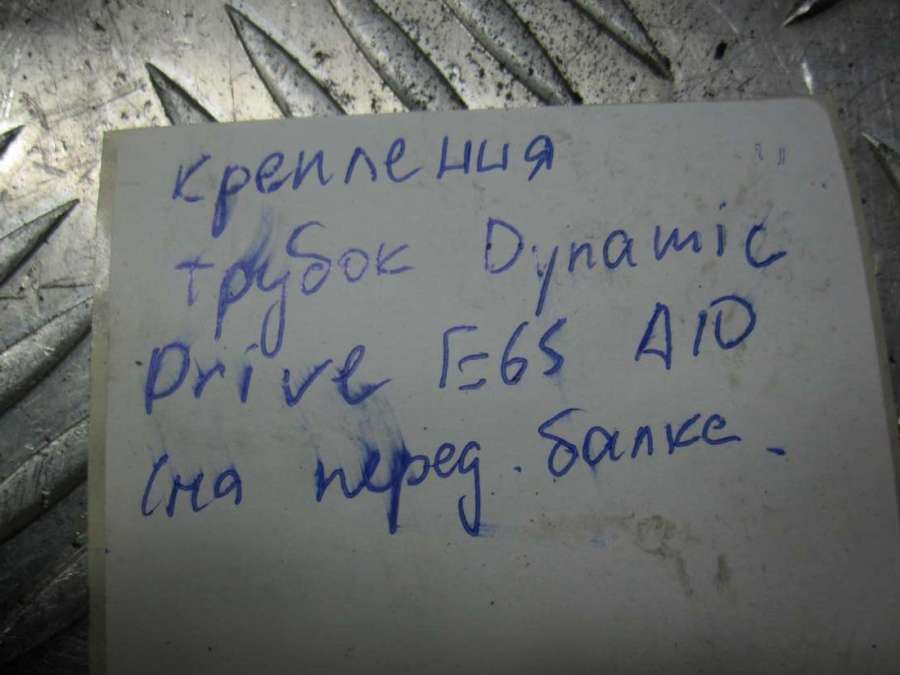 крепления
трубок Dynamic
Drive E65 A10
(на перед. балке -